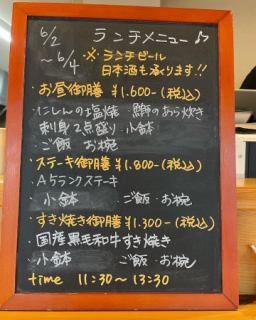 6/2 ～ 6/4
ランチメニュー♪
※ランチビール
日本酒も承ります!!
・お昼御膳 ¥1.600-(税込)
・にしんの塩焼 ・鰤のあら炊き
・刺身2点盛り 小鉢
・ご飯 お椀
・ステーキ御膳 ¥1.800-(税込)
・A5ランクステーキ
・小鉢 ご飯・お椀
・すき焼き御膳 ¥1.300-(税込)
・国産黒毛和牛すき焼き
・小鉢 ご飯・お椀
time 11:30～13:30